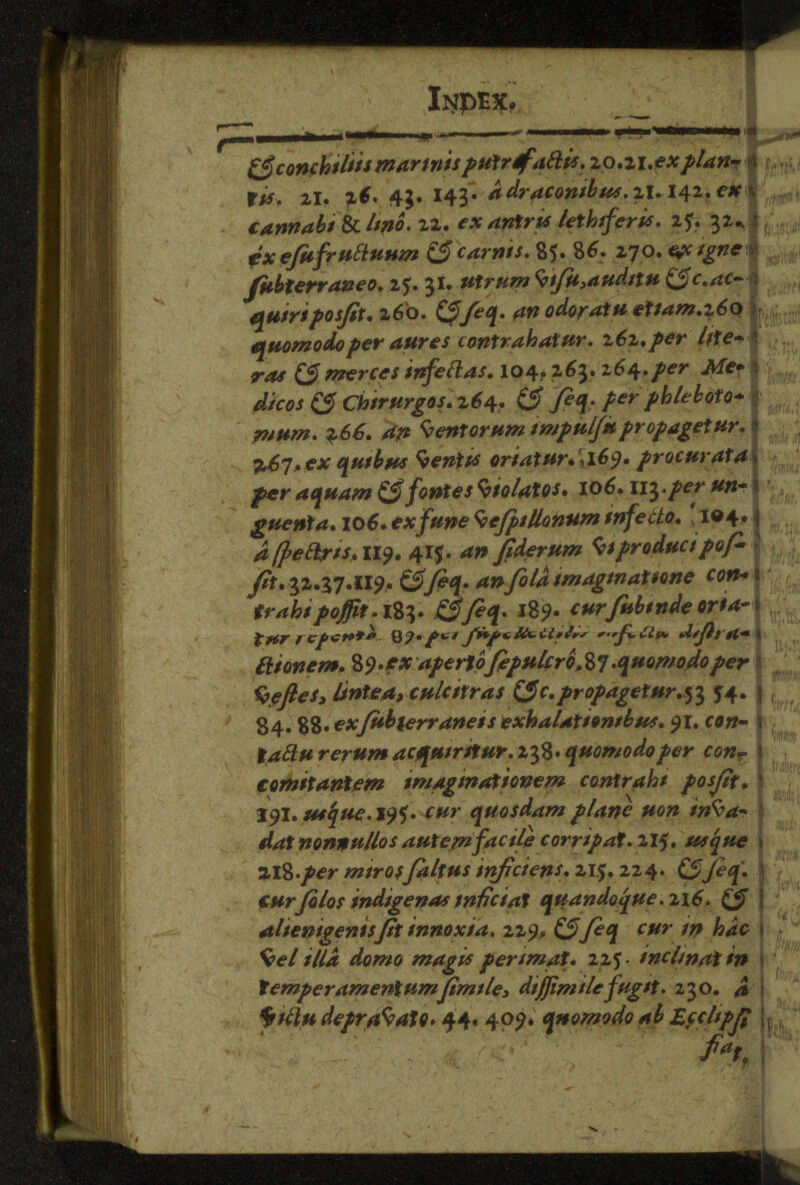 INDEX.
& conchiliis marinis putrefactis. 20.21. ex plan-
tis. 21. 26. 43. 143. à draconibus. 21. 142. ex
cannabi & linô. 22. ex antris lethiferis. 25. 32.
éx esu fructuum & carnis. 85. 86. 270. ex igne
subterraneo. 25. 31. utrum visu, auditu &c. ac-
quiri possit. 260. & seq. an odoratu etiam. 260
quomodo per aures contrahatur. 262. per lite-
ras & merces infectas. 104. 263. 264. per Me-
dicos & Chirurgos. 264. & seq. per phleboto-
mum. 266. an ventorum impulsu propagetur.
267. ex quibus ventis oriatur. 169. procurata
per aquam & fontes violatos. 106. 113. per un-
guenta. 106. ex fune vespillonum infecto. 104.
á spectris. 119. 415. an siderum vi produci pos-
sit. 32. 37. 119. & seq. an solâ imaginatione con-
trahi possit. 183. & seq. 189. cur subinde oria-
tur repentè. 89. per
ctionem. 89. ex apertó sepulcró. 87. quomodo per
vestes, lintea, culcitras &c. propagetur. 53 54.
84. 88. ex subterraneis exhalationibus. 91. con-
tactu rerum acquiritur. 238. quomodo per con-
comitantem imaginationem contrahi possit.
191. usque. 195. cur quosdam planè non inva-
dat nonnullos autem facilè corripat. 215. usque
218. per miros saltus inficiens. 215. 224. & seq.
cur solos indigenas inficiat quandoque. 216. &
alienigenis sit innoxia. 229. & seq cur in hác
vel illâ domo magis perimat. 225. inclinat in
temperamentum simile, dissimile fugit. 230. á
victu depravato. 44. 409. quomodo ab Ecclipsi
fiat,